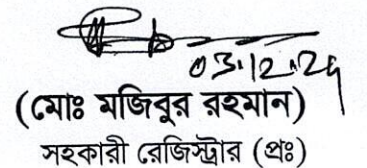 03.12.24
(মোঃ মজিবুর রহমান)
সহকারী রেজিস্ট্রার (প্রঃ)